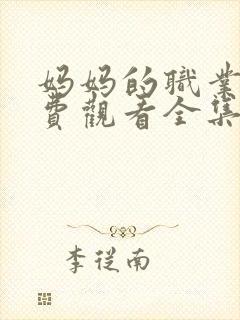 妈妈的職業
費觀看全集
李從南